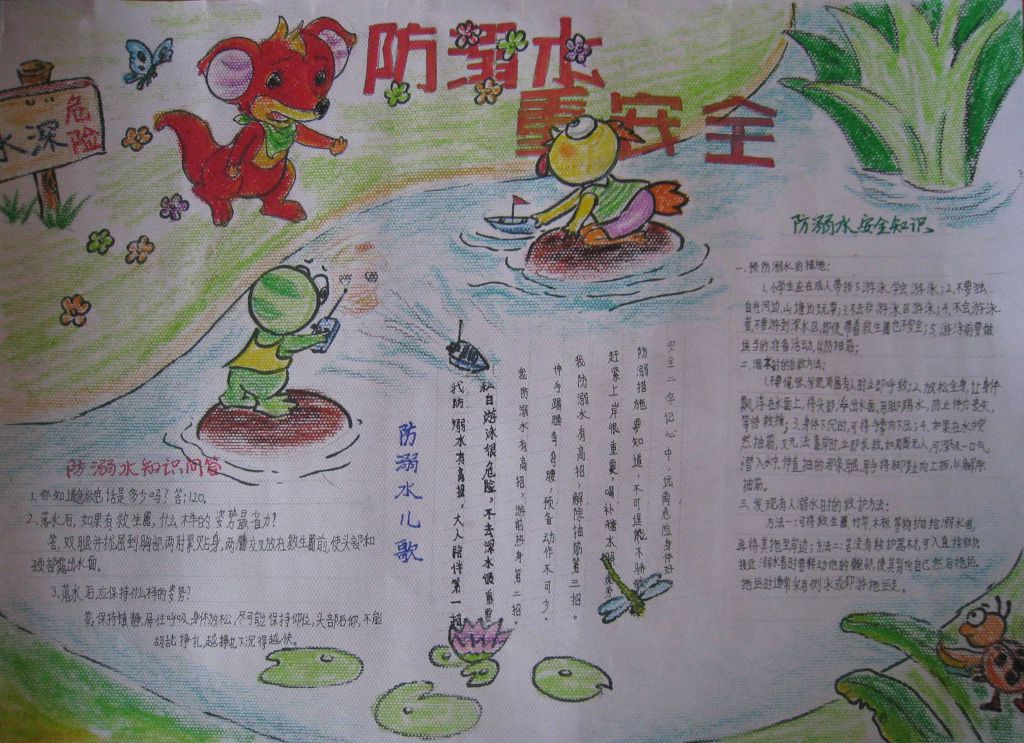 防溺水
重安全
危险
水深
防溺水安全知识
一、预防溺水的措施:
1、小学生应在成人带领下游泳,学会游泳;2、不要独
自在河边、山塘边玩耍;3、不去非游泳区游泳;4、不会游泳
者,不要游到深水区,即使带着救生圈也不安全;5、游泳前要做
适当的准备活动,以防抽筋;
二、溺水时的自救方法:
1、不要慌张,发现周围有人时立即呼救;2、放松全身,让身体
飘浮在水面上,将头部浮出水面,用脚踢水,防止体力丧失,
等待救援;3、身体下沉时,可将手掌向下压;4、如果在水中突
然抽筋,又无法靠岸时,立即求救,如周围无人,可深吸一口气
潜入水中,伸直抽筋的那条腿,用手将脚趾向上扳,以解除
抽筋。
三、发现有人溺水时的救护方法:
方法一:可将救生圈、竹竿、木板等物抛给溺水者,
再将其拖至岸边;方法二:若没有救护器材,可入直接救护
接近溺水者时要转动他的髋部,使其背向自己然后拖运。
拖运时通常采用侧泳或仰游拖运法。
防溺水知识问答
1、你知道急救电话是多少吗?答:120。
2、落水后,如果有救生圈,什么样的姿势最省力?
答:双腿并拢屈到胸部,两肘紧贴身,两臂交叉放在救生圈前,使头部和
颈部露出水面。
3、落水后应保持什么样的姿势?
答:保持镇静,屏住呼吸,身体放松,尽可能保持仰位,头部后仰,不能
胡乱挣扎,越挣扎下沉得越快。
防溺水儿歌
安全二字记心中,远离危险身体好。
防溺措施要知道,不可逞能不骄傲
赶紧上岸很重要,喝补糖水解
我防溺水有高招,解除抽筋第三招。
伸手踢腿弯弯腰,预备动作不可少。
我防溺水有高招,游前热身第二招。
私自游泳很危险,不去深水很重要
我防溺水有高招,大人陪伴第一招